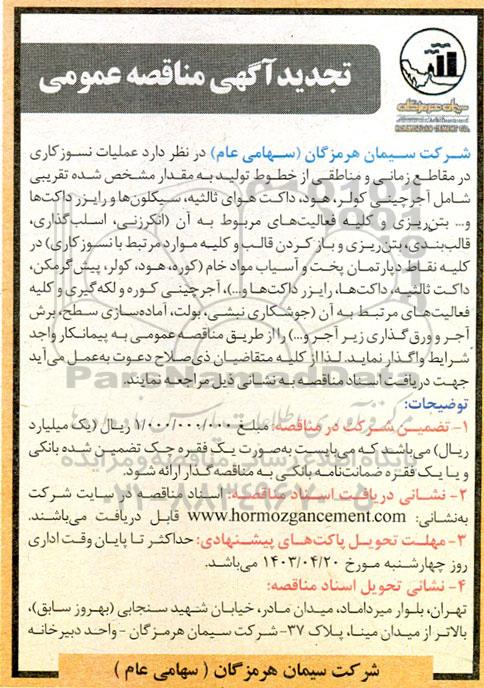 تجدید آگهی مناقصه عمومی
سیمان هرمزگان
HORMOZGAN CEMENT CO.
شرکت سیمان هرمزگان (سهامی عام) در نظر دارد عملیات نسوزکاری
در مقاطع زمانی و مناطقی از خطوط تولید به مقدار مشخص شده تقریبی
شامل آجرچینی کولر، هود، داکت هوای ثالثیه، سیکلون‌ها و رایزر داکت‌ها
و... بتن‌ریزی و کلیه فعالیت‌های مربوط به آن (انکرزنی، اسلب‌گذاری،
قالب‌بندی، بتن‌ریزی و باز کردن قالب و کلیه موارد مرتبط با نسوزکاری) در
کلیه نقاط دپارتمان پخت و آسیاب مواد خام (کوره، هود، کولر، پیش‌گرمکن،
داکت ثالثیه، داکت‌ها، رایزر داکت‌ها و...)، آجرچینی کوره و لکه‌گیری و کلیه
فعالیت‌های مرتبط به آن (جوشکاری نبشی، بولت، آماده‌سازی سطح، برش
آجر و ورق‌گذاری زیر آجر و...) را از طریق مناقصه عمومی به پیمانکار واجد
شرایط واگذار نماید. لذا از کلیه متقاضیان ذی‌صلاح دعوت به‌عمل می‌آید
جهت دریافت اسناد مناقصه به نشانی ذیل مراجعه نمایند.
توضیحات:
۱- تضمین شرکت در مناقصه: مبلغ ۱/۰۰۰/۰۰۰/۰۰۰ ریال (یک میلیارد
ریال) می‌باشد که می‌بایست به‌صورت یک فقره چک تضمین شده بانکی
و یا یک فقره ضمانت‌نامه بانکی به مناقصه گذار ارائه شود.
۲- نشانی دریافت اسناد مناقصه: اسناد مناقصه در سایت شرکت
به‌نشانی: www.hormozgancement.com قابل دریافت می‌باشند.
۳- مهلت تحویل پاکت‌های پیشنهادی: حداکثر تا پایان وقت اداری
روز چهارشنبه مورخ ۱۴۰۳/۰۴/۲۰ می‌باشد.
۴- نشانی تحویل اسناد مناقصه:
تهران، بلوار میرداماد، میدان مادر، خیابان شهید سنجابی (بهروز سابق)،
بالاتر از میدان مینا، پلاک ۳۷- شرکت سیمان هرمزگان - واحد دبیرخانه
شرکت سیمان هرمزگان ( سهامی عام )
ParsNamadData